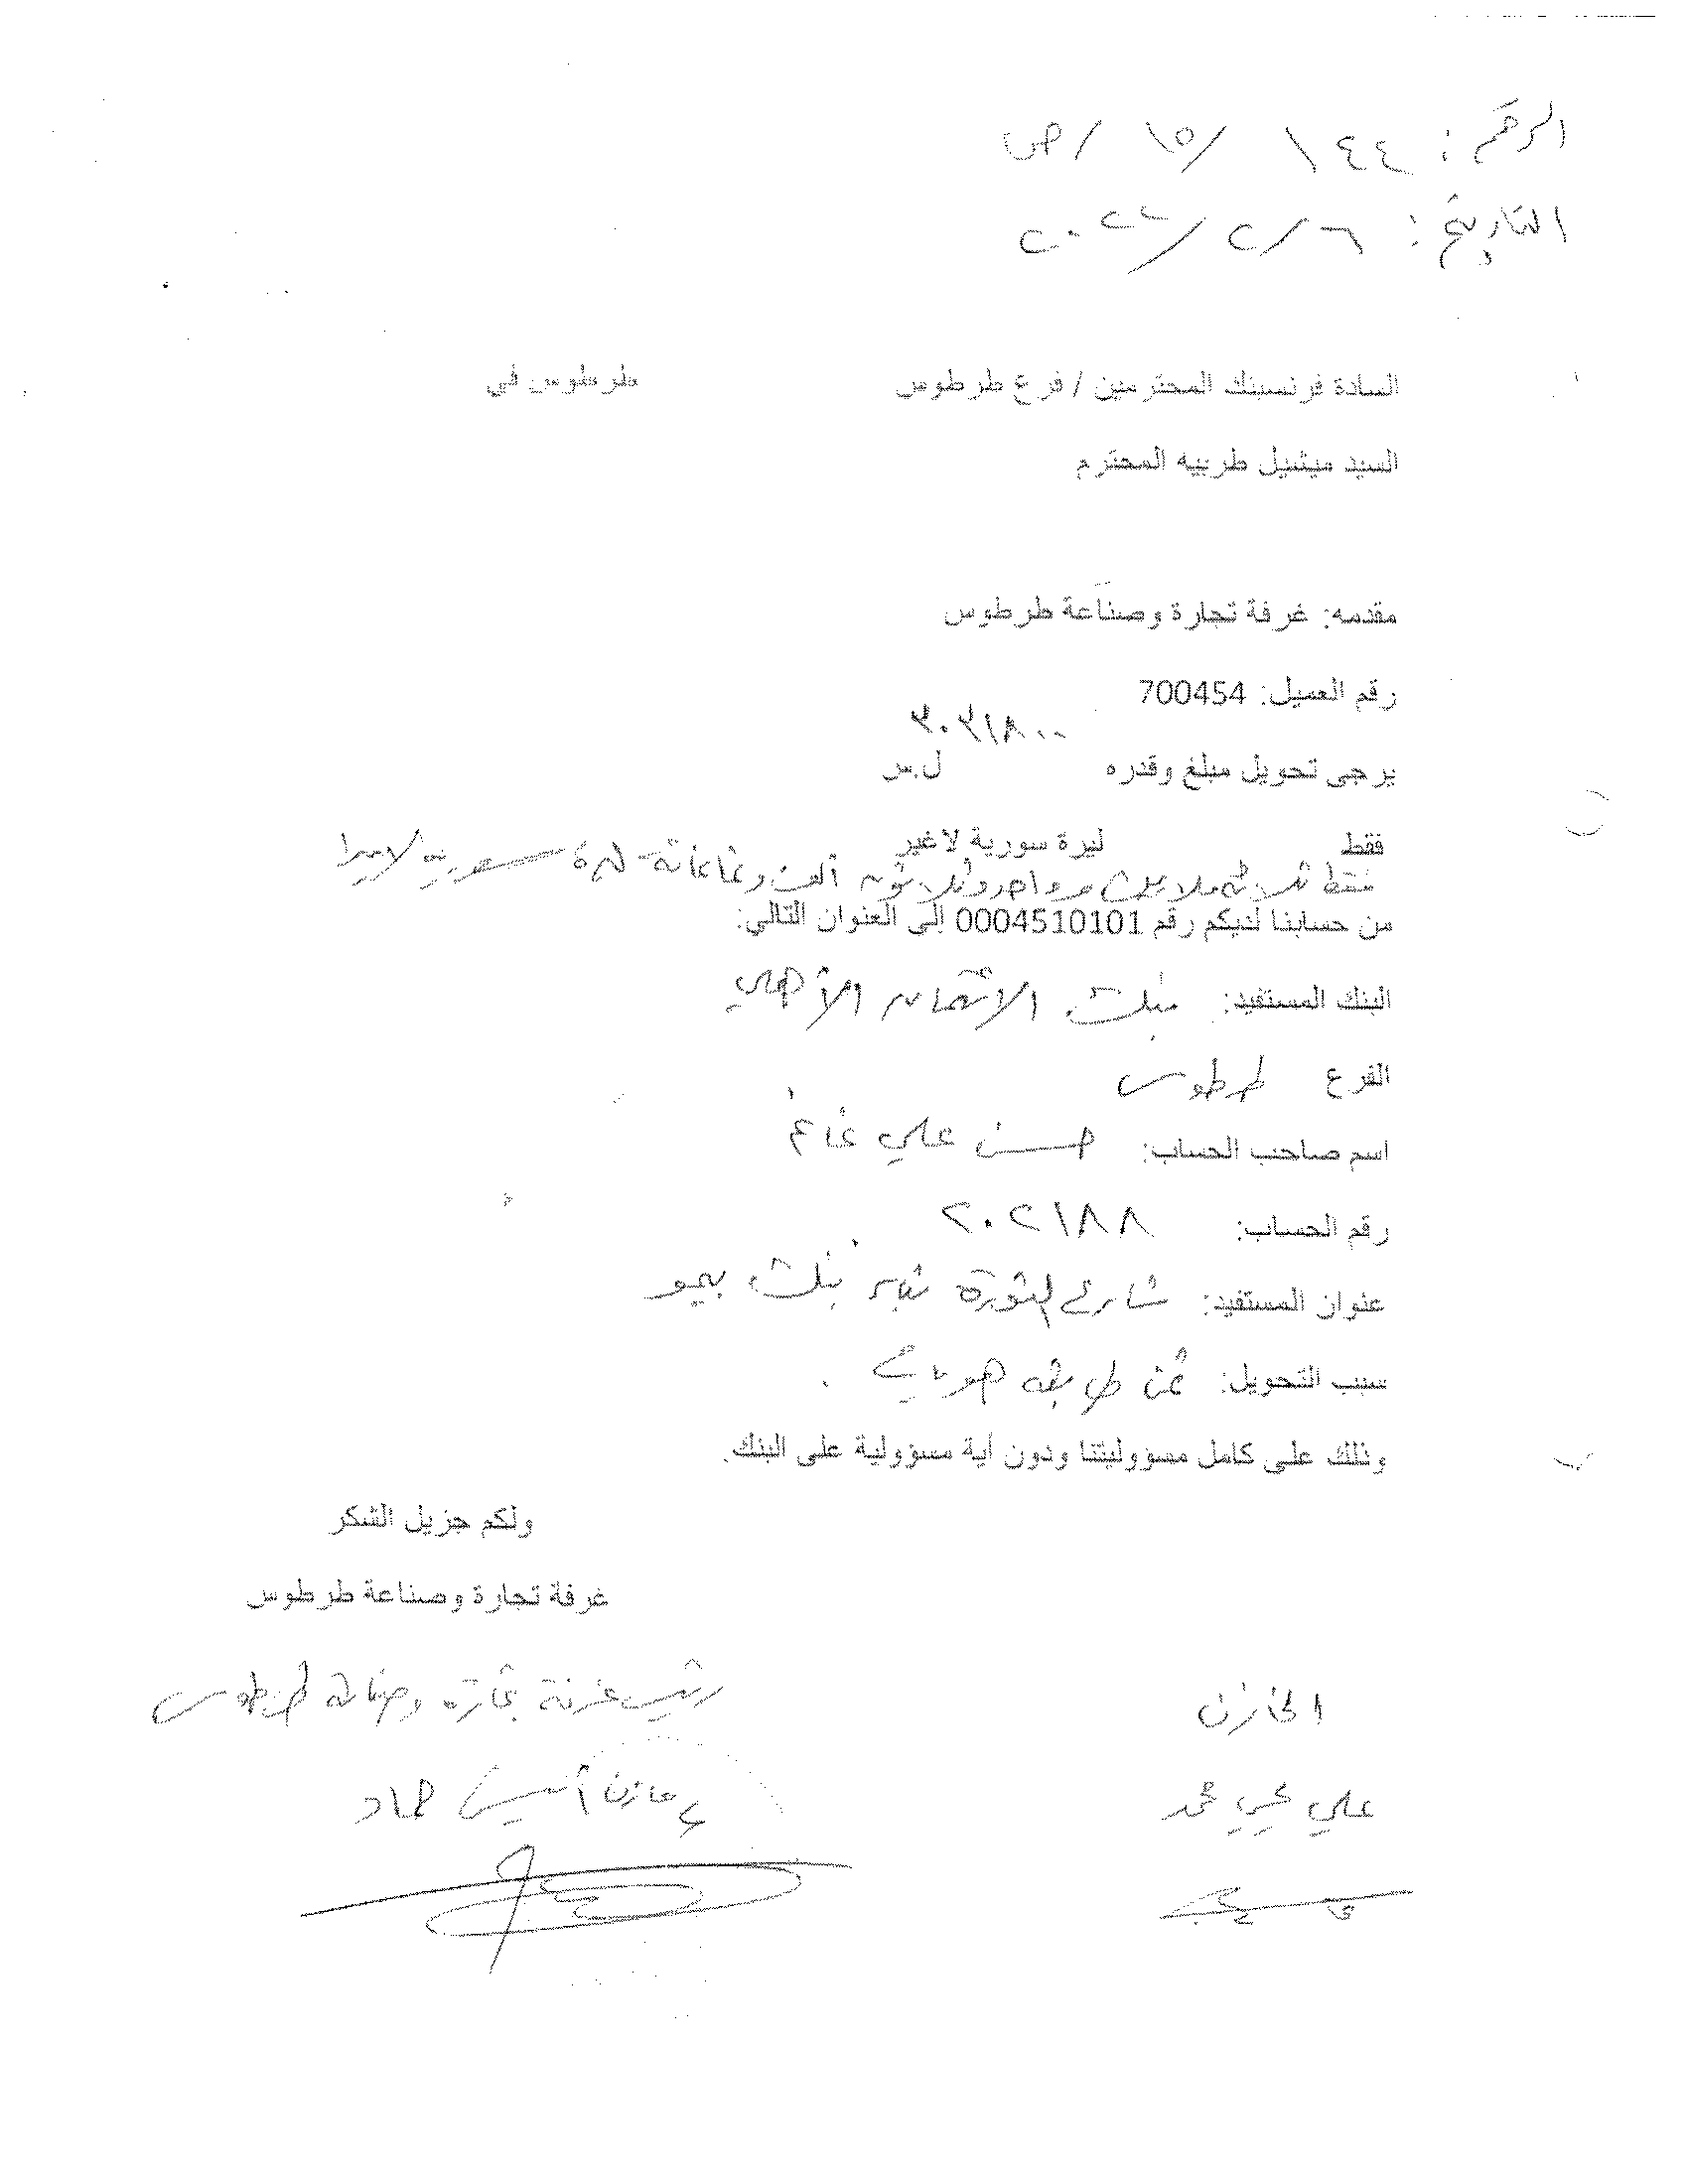 الرقم : ١٤٤ / ١٥ / ص
التاريخ : ٦ / ٢ / ٢٠٢٢
السادة فرنسبنك المحترمين / فرع طرطوس طرطوس في
السيد ميشيل طربيه المحترم
مقدمه: غرفة تجارة وصناعة طرطوس
رقم العميل: 700454
٣٠٣١٨٠٠
يرجى تحويل مبلغ وقدره ل.س
فقط ليرة سورية لاغير
فقط ثلاثة ملايين وواحد وثلاثون ألف وثمانمائة ليرة سورية لاغير
من حسابنا لديكم رقم 0004510101 إلى العنوان التالي:
البنك المستفيد: بنك الائتمان الأهلي
الفرع طرطوس
اسم صاحب الحساب: حسن علي غانم
رقم الحساب: ٢٠٢١٨٨
عنوان المستفيد: شارع الثورة بنك بيمو
سبب التحويل: ثمن
وذلك على كامل مسؤوليتنا ودون أية مسؤولية على البنك.
ولكم جزيل الشكر
غرفة تجارة وصناعة طرطوس
الخازن رئيس غرفة تجارة وصناعة طرطوس
علي يحيى محمد مازن حماد